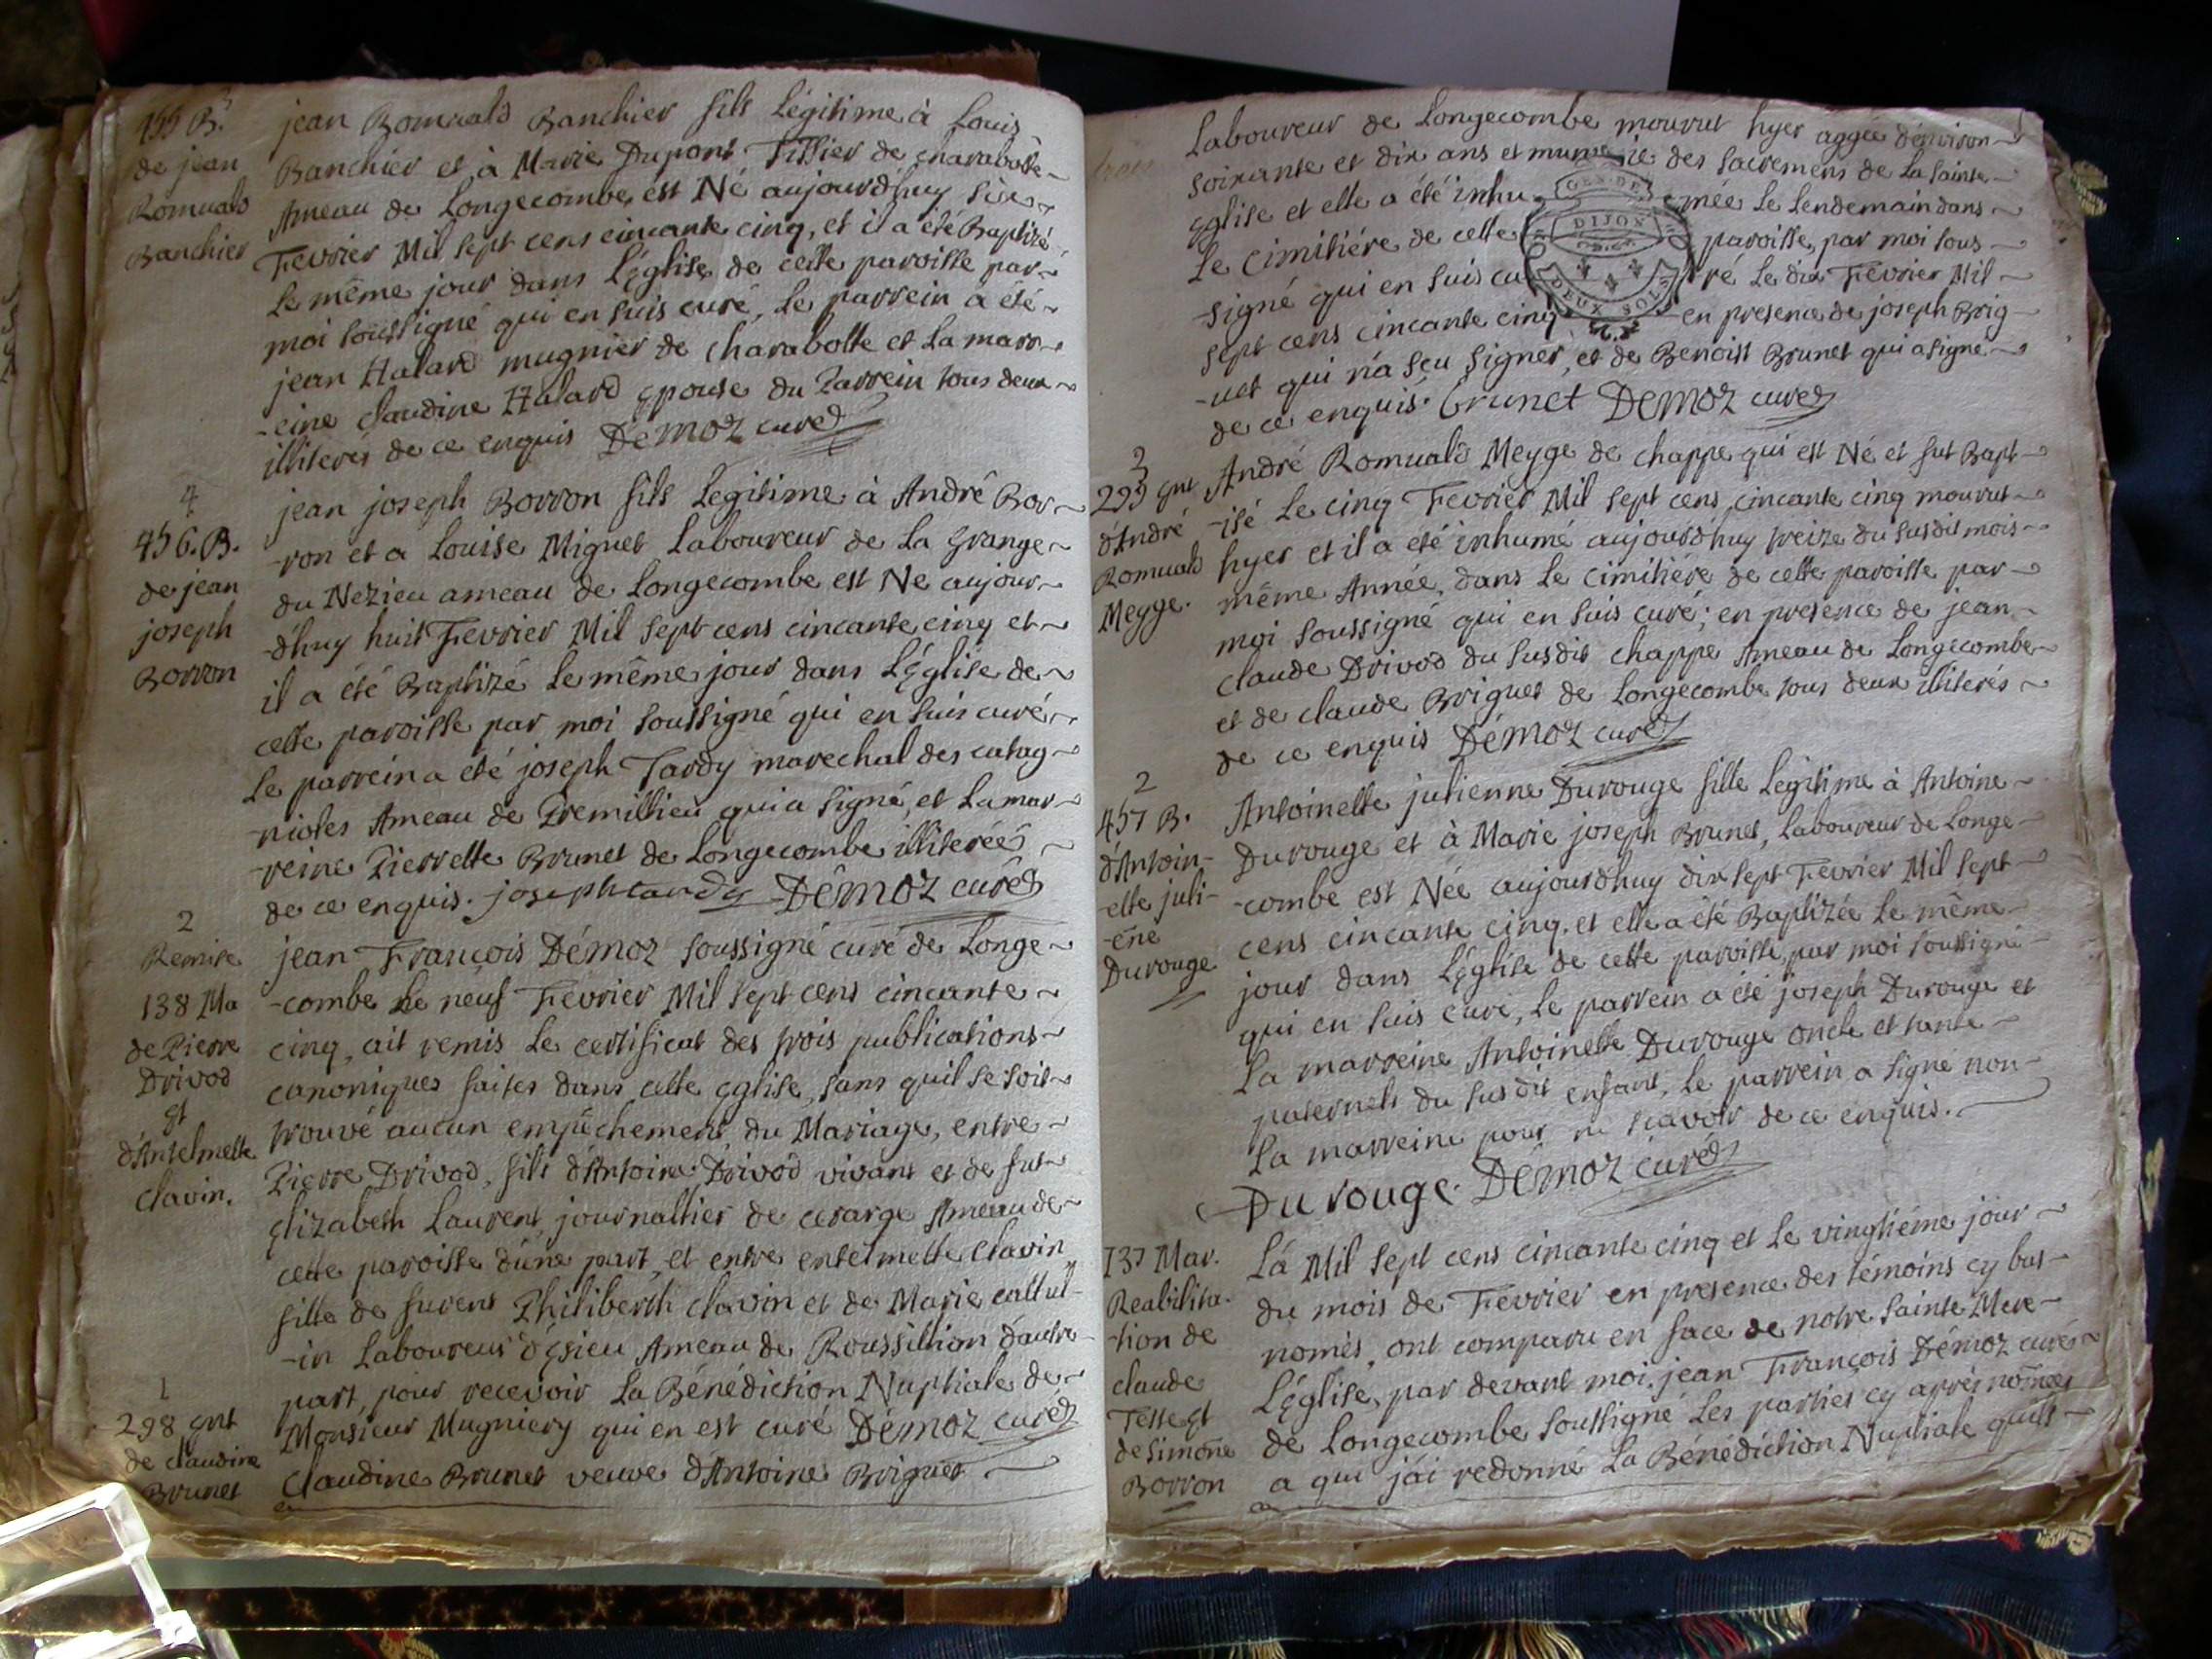 455 B.
de jean
Romuald
Banchier
jean Romuald Banchier fils Légitime à Louis
Banchier et à Marie Dupont Tissier de charabotte
Ameau de Longecombe est Né aujourdhuy six
Fevrier Mil sept cens cincante cinq, et il a été Baptizé
Le même jour dans L'église de cette paroisse par
moi soussigné qui en suis curé, Le parrein a été
jean Halard mugnier de charabotte et La marr-
-eine claudine Halard épouse du Parrein tous deux
illiterés de ce enquis Démoz curé
4
456. B.
de jean
joseph
Borron
jean joseph Borron fils Legitime à André Bor-
-ron et a Louise Miguet Laboureur de La Grange
du Nezieu ameau de Longecombe est Né aujour-
-dhuy huit Fevrier Mil sept cens cincante cinq et
il a été Baptizé Le même jour dans L'église de
cette paroisse par moi soussigné qui en suis curé
Le parrein a été joseph Tardy marechal des catag-
-nioles Ameau de Premillieu qui a signé, et La mar-
-reine Pierrette Brunet de Longecombe illiterées
de ce enquis. joseph tardy Démoz curé
2
Remise
138 Ma
de Pierre
Drivod
et
d'Antelmette
clavin.
jean François Démoz soussigné curé de Longe-
-combe Le neuf Fevrier Mil sept cens cincante
cinq, ait remis Le certificat des trois publications
canoniques faites dans cette église, sans quil se soit
trouvé aucun empêchement du Mariage, entre
Pierre Drivod, fils d'Antoine Drivod vivant et de fut
élizabeth Laurent journallier de cerarge Ameau de
cette paroisse d'une part, et entre entelmette clavin
fille de furent Philiberth clavin et de Marie callul-
-in Laboureur d'ésieu Ameau de Roussillion d'autre
part, pour recevoir La Bénédiction Nuptiale de
Monsieur Mugniery qui en est curé Démoz curé
1
298 ent
de claudine
Brunet
claudine Brunet veuve d'Antoine Briguet
Laboureur de Longecombe mourut hyer aggée d'environ
soixante et dix ans et munie des sacremens de La sainte
église et elle a été inhumée Le lendemain dans
Le cimitiére de cette paroisse, par moi sous
GEN. DE
DIJON
DEUX SOLS
-signé qui en suis curé Le dix Fevrier Mil
sept cens cincante cinq en presence de joseph Brig-
-uet qui n'a sçu signer, et de Benoist Brunet qui a signé
de ce enquis. Brunet Démoz curé
2
299 ent
d'André
Romuald
Meyge.
André Romuald Meyge de chappe qui est Né et fut Bapt-
-isé Le cinq Fevrier Mil sept cens cincante cinq mourut
hyer et il a été inhumé aujourdhuy treize du susdit mois
même Année, dans Le cimitiére de cette paroisse par
moi soussigné qui en suis curé; en presence de jean
claude Drivod du susdit chappe Ameau de Longecombe
et de claude Briguet de Longecombe tous deux illiterés
de ce enquis Démoz curé
2
457 B.
d'Antoin-
-ette juli-
-ene
Durouge
Antoinette julienne Durouge fille Legitime à Antoine
Durouge et à Marie joseph Brunet, Laboureur de Longe-
-combe est Née aujourdhuy dix sept Fevrier Mil sept
cens cincante cinq. et elle a été Baptizée Le même
jour dans L'église de cette paroisse, par moi soussigné
qui en suis curé, Le parrein a été joseph Durouge et
La marreine Antoinette Durouge oncle et tante
paternels du susdit enfant, Le parrein a signé non
La marreine pour ne sçavoir de ce enquis.
Durouge. Démoz curé
137 Mar.
Reabilita-
-tion de
claude
Teste et
de Simone
Borron
L'a Mil sept cens cincante cinq et Le vingtiéme jour
du mois de Fevrier en presence des témoins cy bas
només, ont comparu en face de notre sainte Mere
L'église, par devant moi jean François Démoz curé
de Longecombe soussigné Les parties cy aprés nomées
a qui j'ai redonné La Bénédiction Nuptiale quils